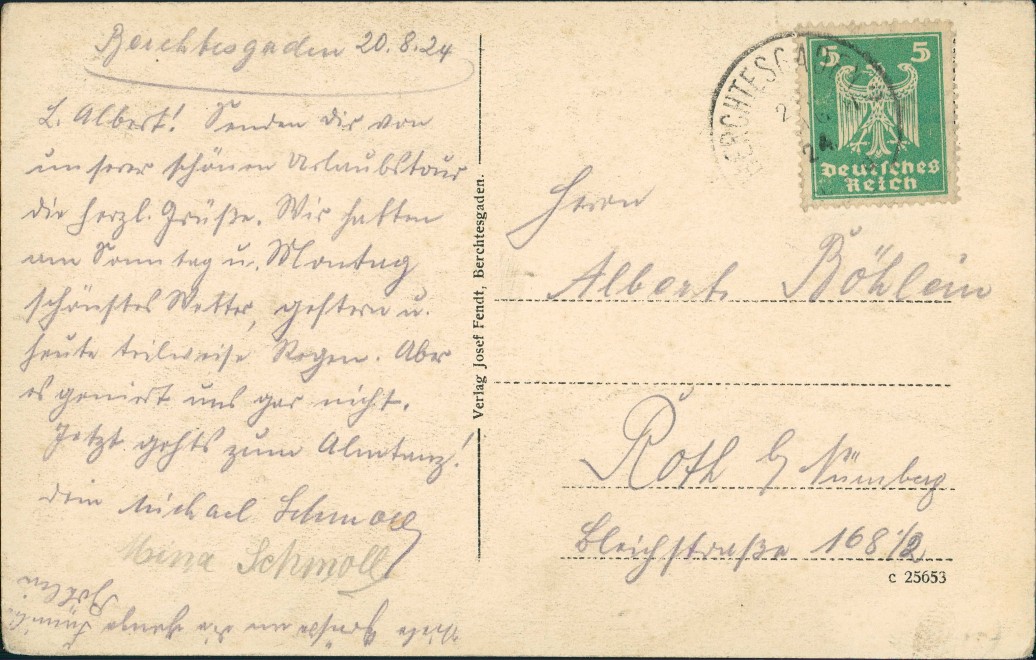 Berchtesgaden 20.8.24
L. Albert! Senden dir von
unserer schönen Urlaubstour
die herzl. Grüße. Wir hatten
am Sonntag u. Montag
schönstes Wetter, gestern u.
heute teilweise Regen. Aber
es geniert uns gar nicht.
Jetzt gehts zum Almtanz!
Dein Michael Schmoll
Mina Schmoll
Viele Grüße an die ganze Familie
Böhlein
Verlag Josef Fendt, Berchtesgaden.
BERCHTESGADEN
5 5
Deutsches
Reich
Herrn
Albert Böhlein
Roth b/ Nürnberg
Bleichstraße 168 1/2
c 25653